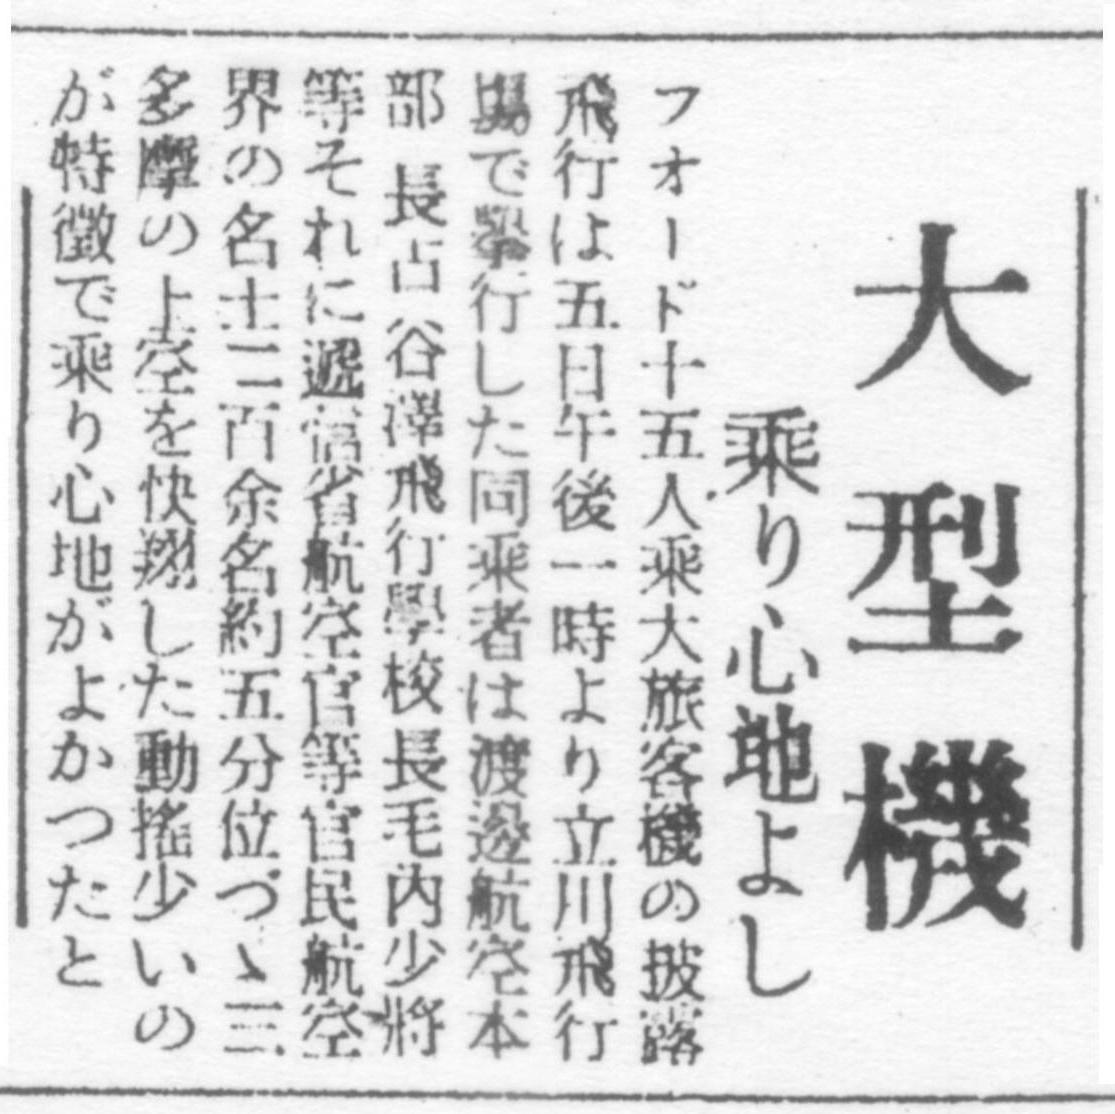 大型機
乗り心地よし
フオード十五人乘大旅客機の披露
飛行は五日午後一時より立川飛行
場で擧行した同乘者は渡邊航空本
部長占谷澤飛行學校長毛内少將
等それに遞信省航空官等官民航空
界の名士二百余名約五分位づゝ三
多摩の上空を快翔した動搖少いの
が特徴で乘り心地がよかつたと